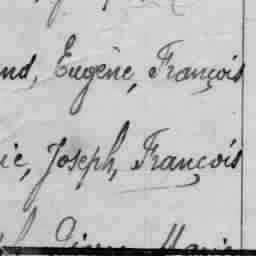 nd, Eugène, François
ie, Joseph, François
Pierre Marie